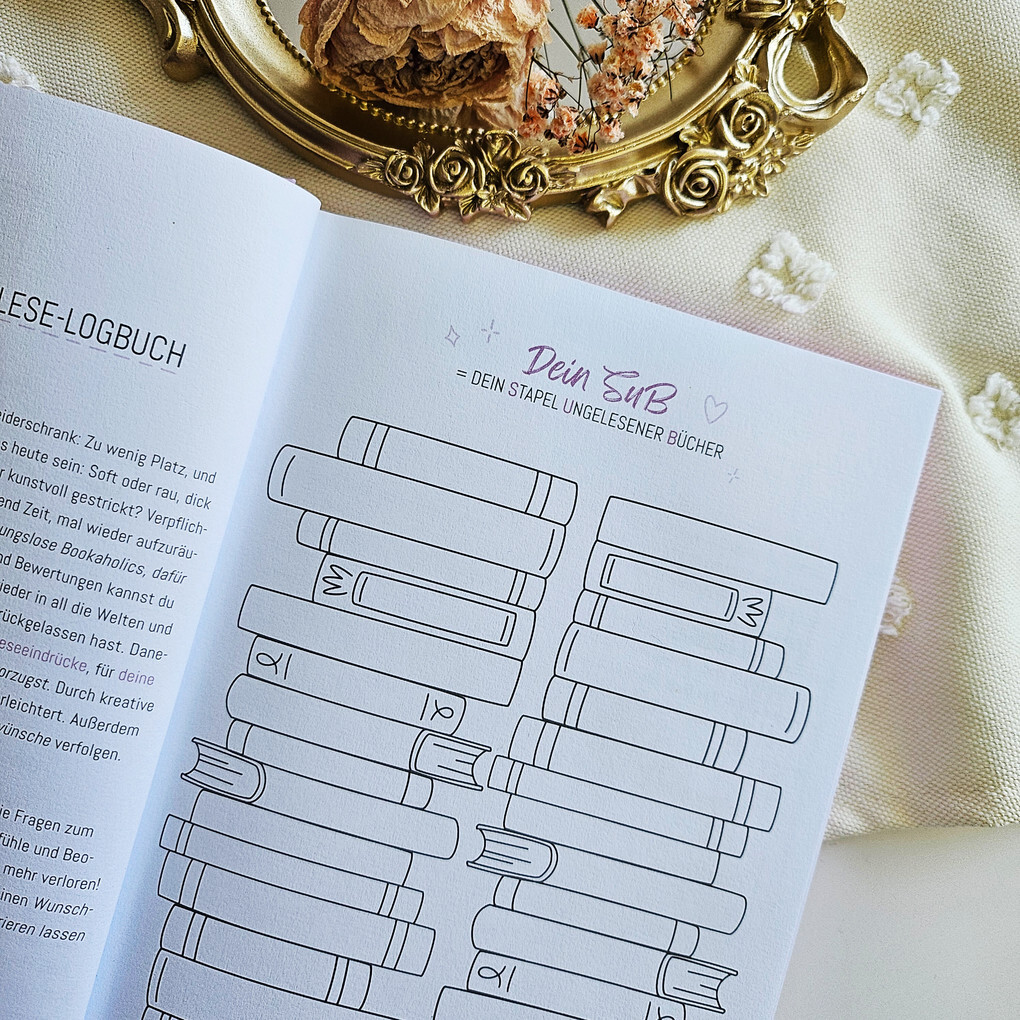 LESE-LOGBUCH
Zu wenig Platz, und
s heute sein: Soft oder rau, dick
kunstvoll gestrickt? Verpflich-
end Zeit, mal wieder aufzuräu-
ungslose Bookaholics, dafür
nd Bewertungen kannst du
ieder in all die Welten und
rückgelassen hast. Dane-
eseeindrücke, für deine
orzugst. Durch kreative
rleichtert. Außerdem
wünsche verfolgen.
ie Fragen zum
fühle und Beo-
mehr verloren!
inen Wunsch-
rieren lassen
Dein SuB
= DEIN STAPEL UNGELESENER BÜCHER